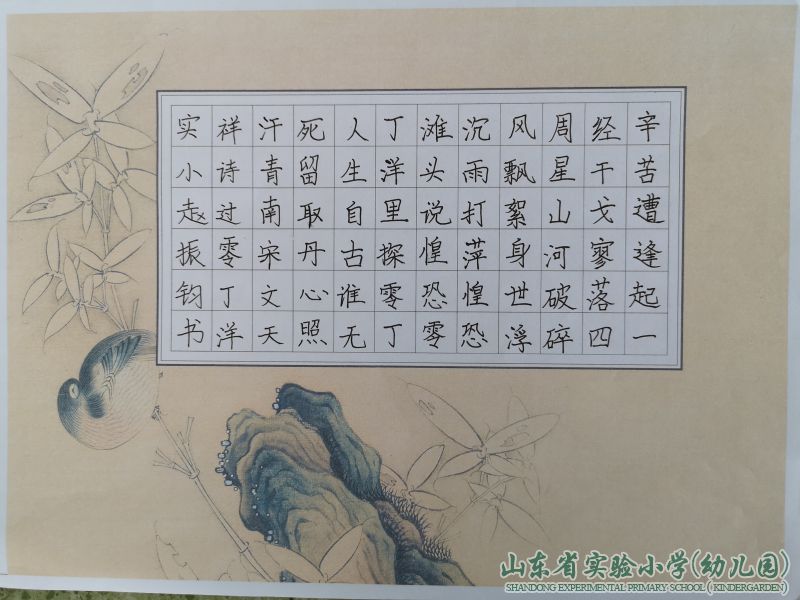 辛苦遭逢起一
经干戈寥落四
周星山河破碎
风飘絮身世浮
沉雨打萍惶恐
滩头说惶恐零
丁洋里探零丁
人生自古谁无
死留取丹心照
汗青南宋文天
祥诗过零丁洋
实小赵振钧书
山东省实验小学(幼儿园)
SHANDONG EXPERIMENTAL PRIMARY SCHOOL (KINDERGARDEN)